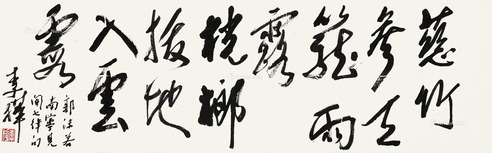 慈竹
参天
籠雨
露
桄榔
拔地
入雲
霞
郭沫若
南寧見
聞七律句
李鐸